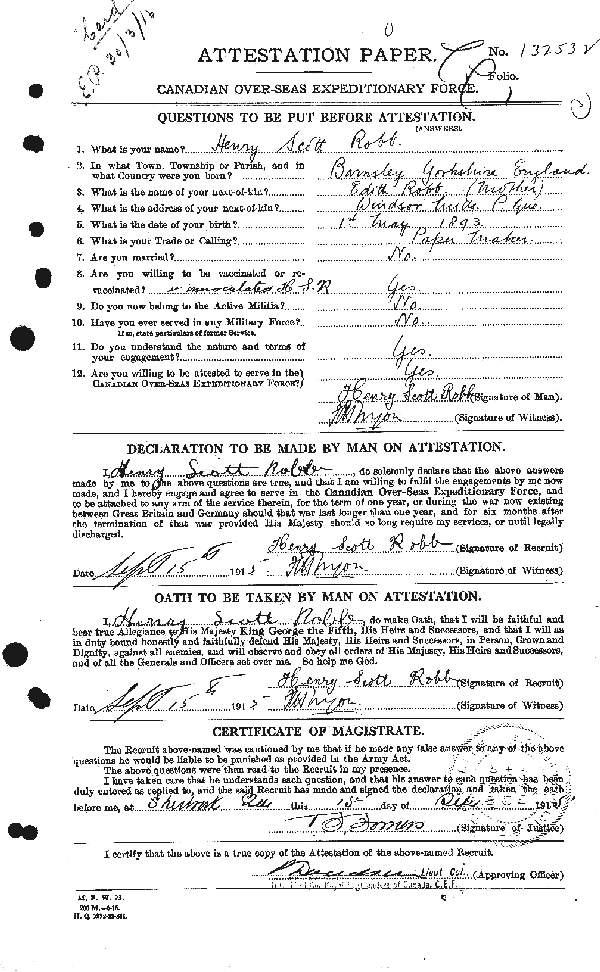 Card
30/3/16
ATTESTATION PAPER.
No. 132532
Folio.
CANADIAN OVER-SEAS EXPEDITIONARY FORCE.
QUESTIONS TO BE PUT BEFORE ATTESTATION.
(ANSWERS).
1. What is your name? Henry Scott Robb.
2. In what Town, Township or Parish, and in
what Country were you born? Barnsley Yorkshire England.
3. What is the name of your next-of-kin? Edith Robb (Mother)
4. What is the address of your next-of-kin? Windsor Mills P. Que
5. What is the date of your birth? 1st May 1893
6. What is your Trade or Calling? Paper Maker
7. Are you married? No.
8. Are you willing to be vaccinated or re-
vaccinated? inoculated H.S.R Yes
9. Do you now belong to the Active Militia? No.
10. Have you ever served in any Military Force? No.
If so, state particulars of former Service.
11. Do you understand the nature and terms of
your engagement? Yes.
12. Are you willing to be attested to serve in the
CANADIAN OVER-SEAS EXPEDITIONARY FORCE? Yes.
Henry Scott Robb (Signature of Man).
(Signature of Witness).
DECLARATION TO BE MADE BY MAN ON ATTESTATION.
I, Henry Scott Robb, do solemnly declare that the above answers
made by me to the above questions are true, and that I am willing to fulfil the engagements by me now
made, and I hereby engage and agree to serve in the Canadian Over-Seas Expeditionary Force, and
to be attached to any arm of the service therein, for the term of one year, or during the war now existing
between Great Britain and Germany should that war last longer than one year, and for six months after
the termination of that war provided His Majesty should so long require my services, or until legally
discharged.
Henry Scott Robb (Signature of Recruit)
Date Sept 15th 1915 (Signature of Witness)
OATH TO BE TAKEN BY MAN ON ATTESTATION.
I, Henry Scott Robb, do make Oath, that I will be faithful and
bear true Allegiance to His Majesty King George the Fifth, His Heirs and Successors, and that I will as
in duty bound honestly and faithfully defend His Majesty, His Heirs and Successors, in Person, Crown and
Dignity, against all enemies, and will observe and obey all orders of His Majesty, His Heirs and Successors,
and of all the Generals and Officers set over me. So help me God.
Henry Scott Robb (Signature of Recruit)
Date Sept 15th 1915 (Signature of Witness)
CERTIFICATE OF MAGISTRATE.
The Recruit above-named was cautioned by me that if he made any false answer to any of the above
questions he would be liable to be punished as provided in the Army Act.
The above questions were then read to the Recruit in my presence.
I have taken care that he understands each question, and that his answer to each question has been
duly entered as replied to, and the said Recruit has made and signed the declaration and taken the oath
before me, at Que this 15th day of Sept 1915
(Signature of Justice)
I certify that the above is a true copy of the Attestation of the above-named Recruit.
Lieut Col. (Approving Officer)
of Canada, C.E.F.
M. F. W. 23.
200 M.-6-15.
H. Q. 1772-39-841.